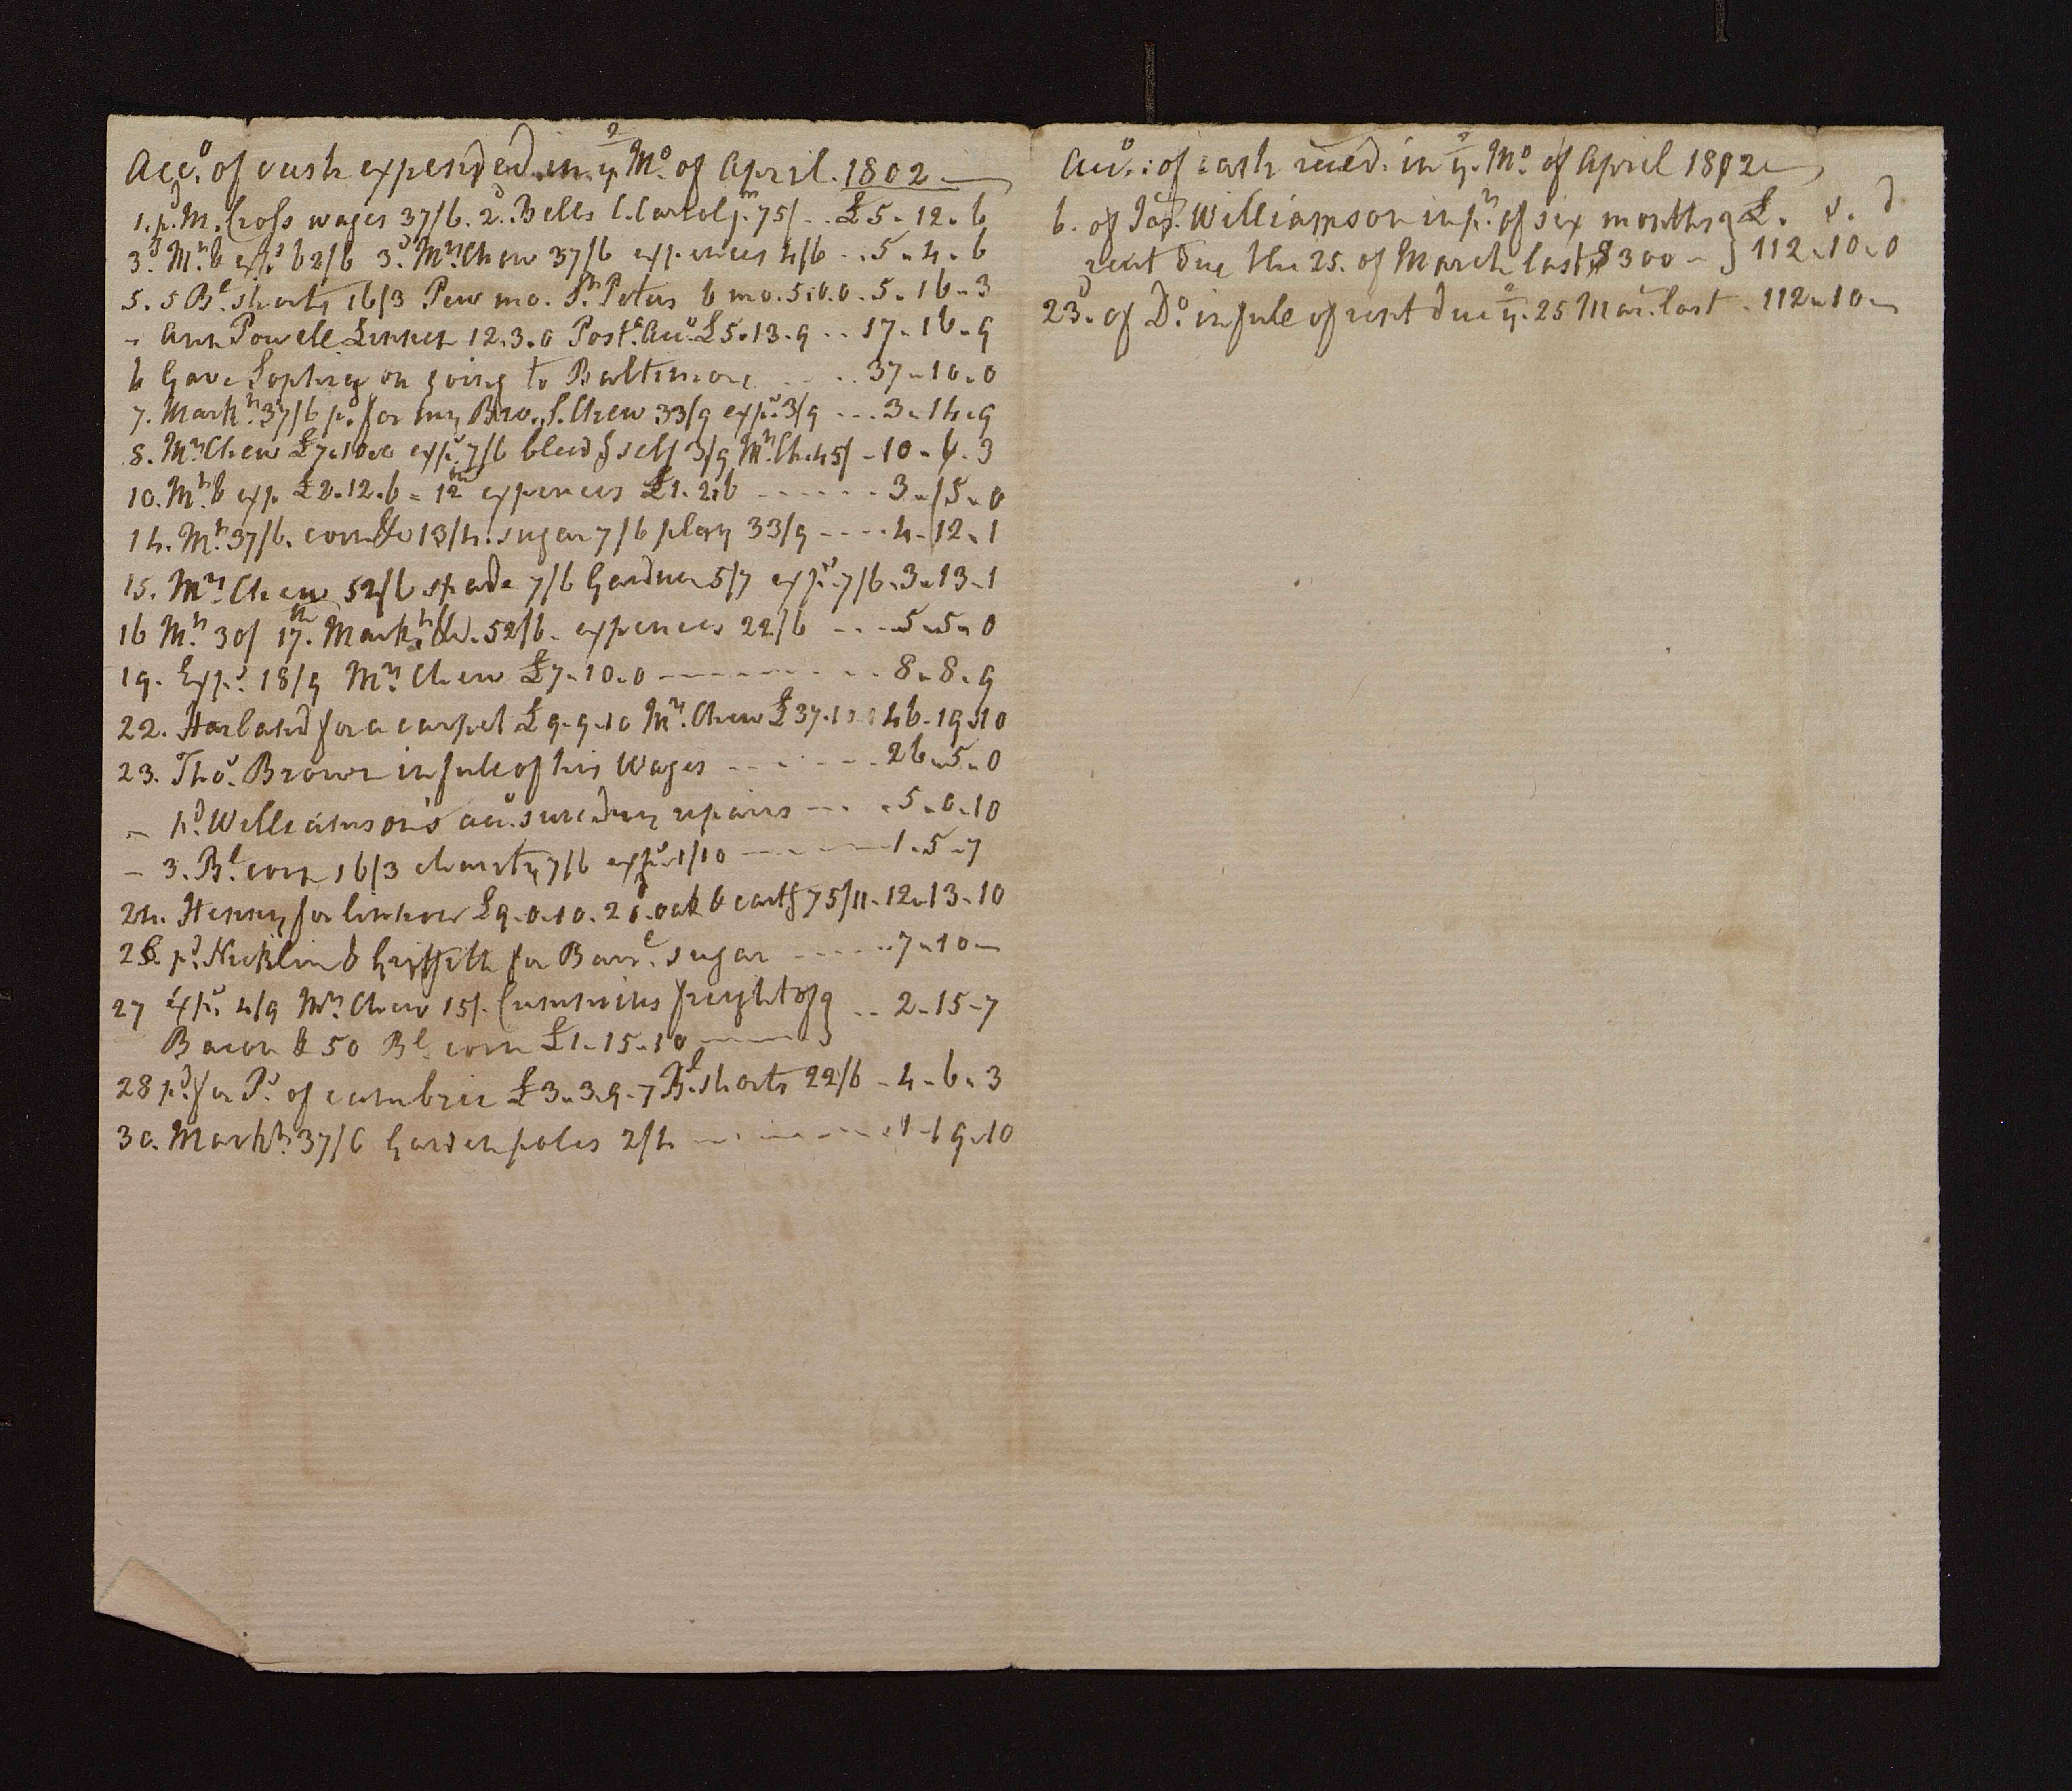 Acco. of cash expended in ye. Mo. of April. 1802
1. pd. M. Cross wages 37/6. 2d. Bells C. Carrol jm. 75/ .. £5-12-6
3d. Mn. & exps. 62/6 3d. Mrs. Chew 37/6 expences 4/6 .. 5-4-6
5. 5 Bl. shorts 16/3 Pew mo. St. Peters 6 mo. 5.0.0. 5-16-3
- Ann Powell Linnen 12.3.0 Posta. Acco. £5.13.9 .. 17-16-9
6 Gave Sophia on going to Baltimore .... 37-10-0
7. Markt. 37/6 pd. for my Bro. S. Chew 33/9 exps. 3/9 ... 3-14-9
8. Mrs. Chew £7-10-0 exps. 7/6 bleedg self 3/9 Mrs. Ch. 45/ - 10-6-3
10. Mt. & exp. £2-12-6 = 12th expences £1.2.6 ...... 3-15-0
14. Mt. 37/6. corn &c 13/4. sugar 7/6 play 33/9 .... 4-12-1
15. Mrs. Chew 52/6 spade 7/6 Gardner 5/7 exps. 7/6. 3-13-1
16 Mt. 30/ 17th. Markt. &c. 52/6. expences 22/6 .... 5-5-0
19. Exps. 18/9 Mrs. Chew £7-10-0 ........ 8-8-9
22. Harland for a carpet £9-9-10 Mrs. Chew £37.10.0 46-19-10
23. Thos. Brown in full of his Wages ....... 26-5-0
- pd. Williamson's acco. sundry repairs ... 5-0-10
- 3. Bl. corn 16/3 charity 7/6 exps. 1/10 ...... 1-5-7
24. Henry for linnen £9-0-10. 2 cd. oak & cartg 75/11. 12-13-10
26. pd. Nicklin & Griffith for Barrl. sugar ...... 7-10-
27 Exps. 4/9 Mrs. Chew 15/. Cummins freight of } .. 2-15-7
Bacon & 50 Bl. corn £1-15-10 ......
28 pd. for Ps. of cambric £3-3-9-7 Bl. shorts 22/6 - 4-6-3
30. Markt. 37/6 Garden poles 2/4 ........ 1-19-10
Acco.: of cash recd. in ye. Mo. of April 1802
6. of Jas. Williamson in pt. of six months } £. s. d
rent due the 25. of March last $300 - } 112-10-0
23d. of Do. in full of rent due ye. 25 Mar. last . 112-10-